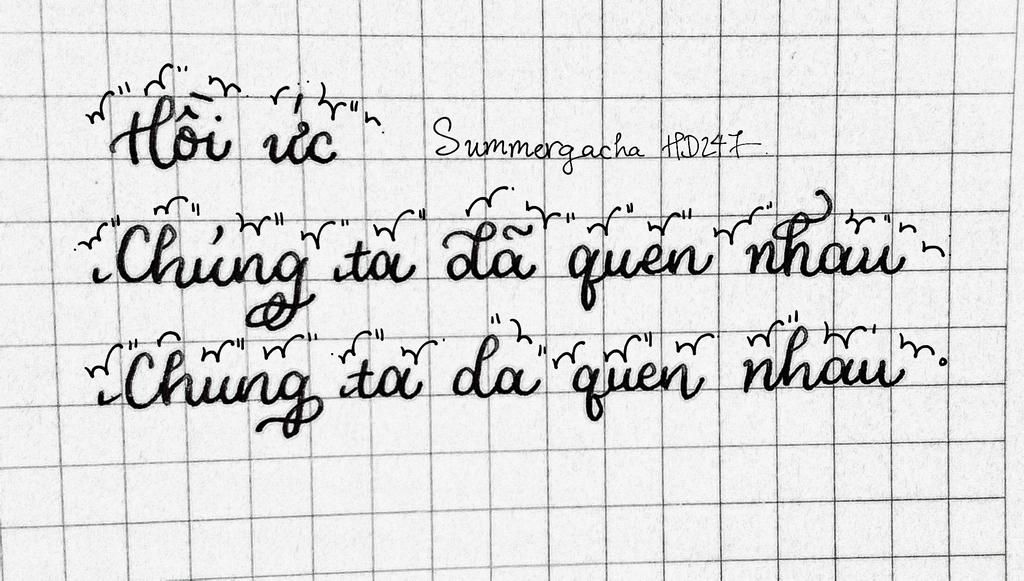 Hồi ức Summergacha HD247
Chúng ta đã quen nhau
Chung ta da quen nhau.